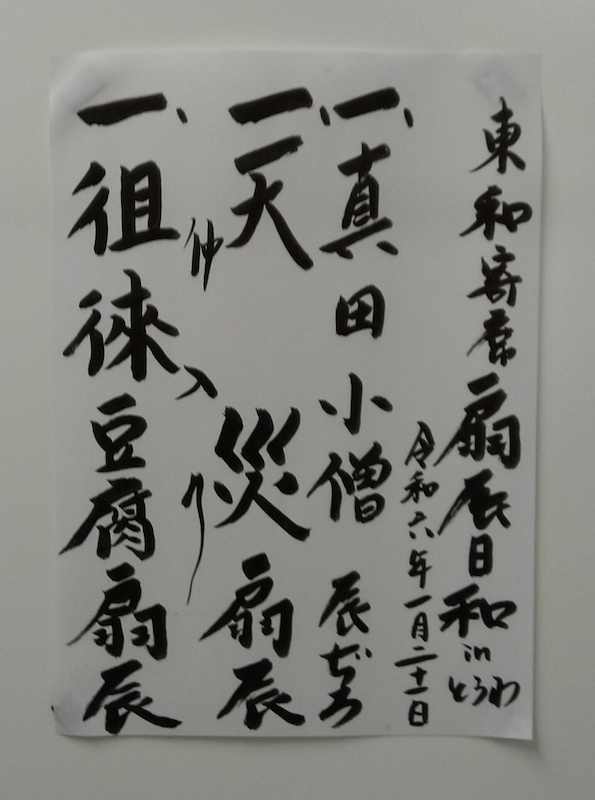 東和寄席 扇辰日和 in とうわ
令和六年一月二十一日
一、真田小僧 辰ぢろ
一、天災 扇辰
仲入り
一、徂徠豆腐 扇辰